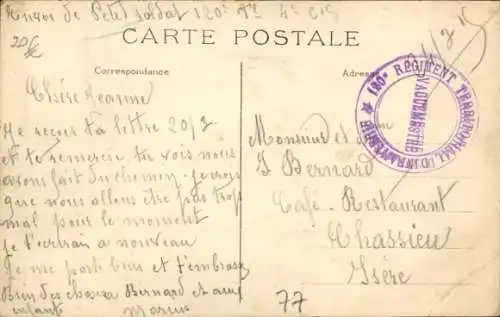 Envoi de Petit soldat 120e Tal 4e Cie
20f
CARTE POSTALE
Correspondance
Adresse
120e REGIMENT TERRITORIAL D'INFANTERIE
VAGUEMESTRE
Chère Jeanne
Je reçois ta lettre 20/2
et te remercie tu vois nous
avons fait du chemin je crois
que nous allons être pas trop
mal pour le moment
je t'écrirai a nouveau
Je me porte bien et t'embrasse
Bien des choses a Bernard et aux
enfants Marius
Monsieur et
J Bernard
Café-Restaurant
Chassieu
Isère
77